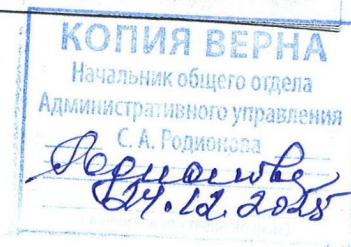 КОПИЯ ВЕРНА
Начальник общего отдела
Административного управления
С. А. Родионова
Родионова
24.12.2025